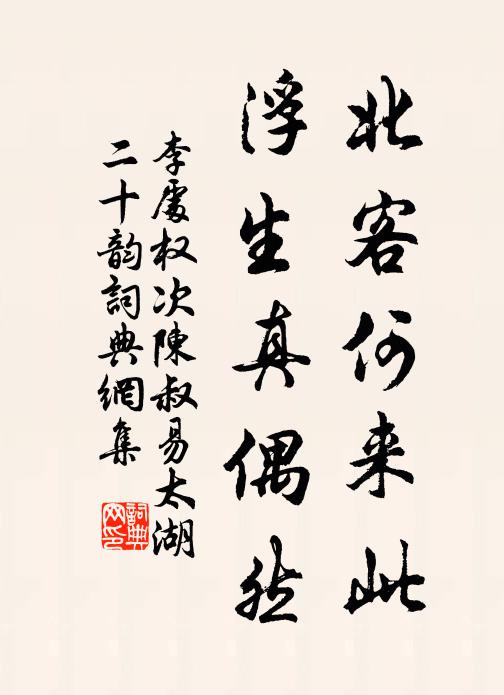 北客何来此
浮生真偶然
李處权次陳叔易太湖
二十韵詞典網集
詞典
网印